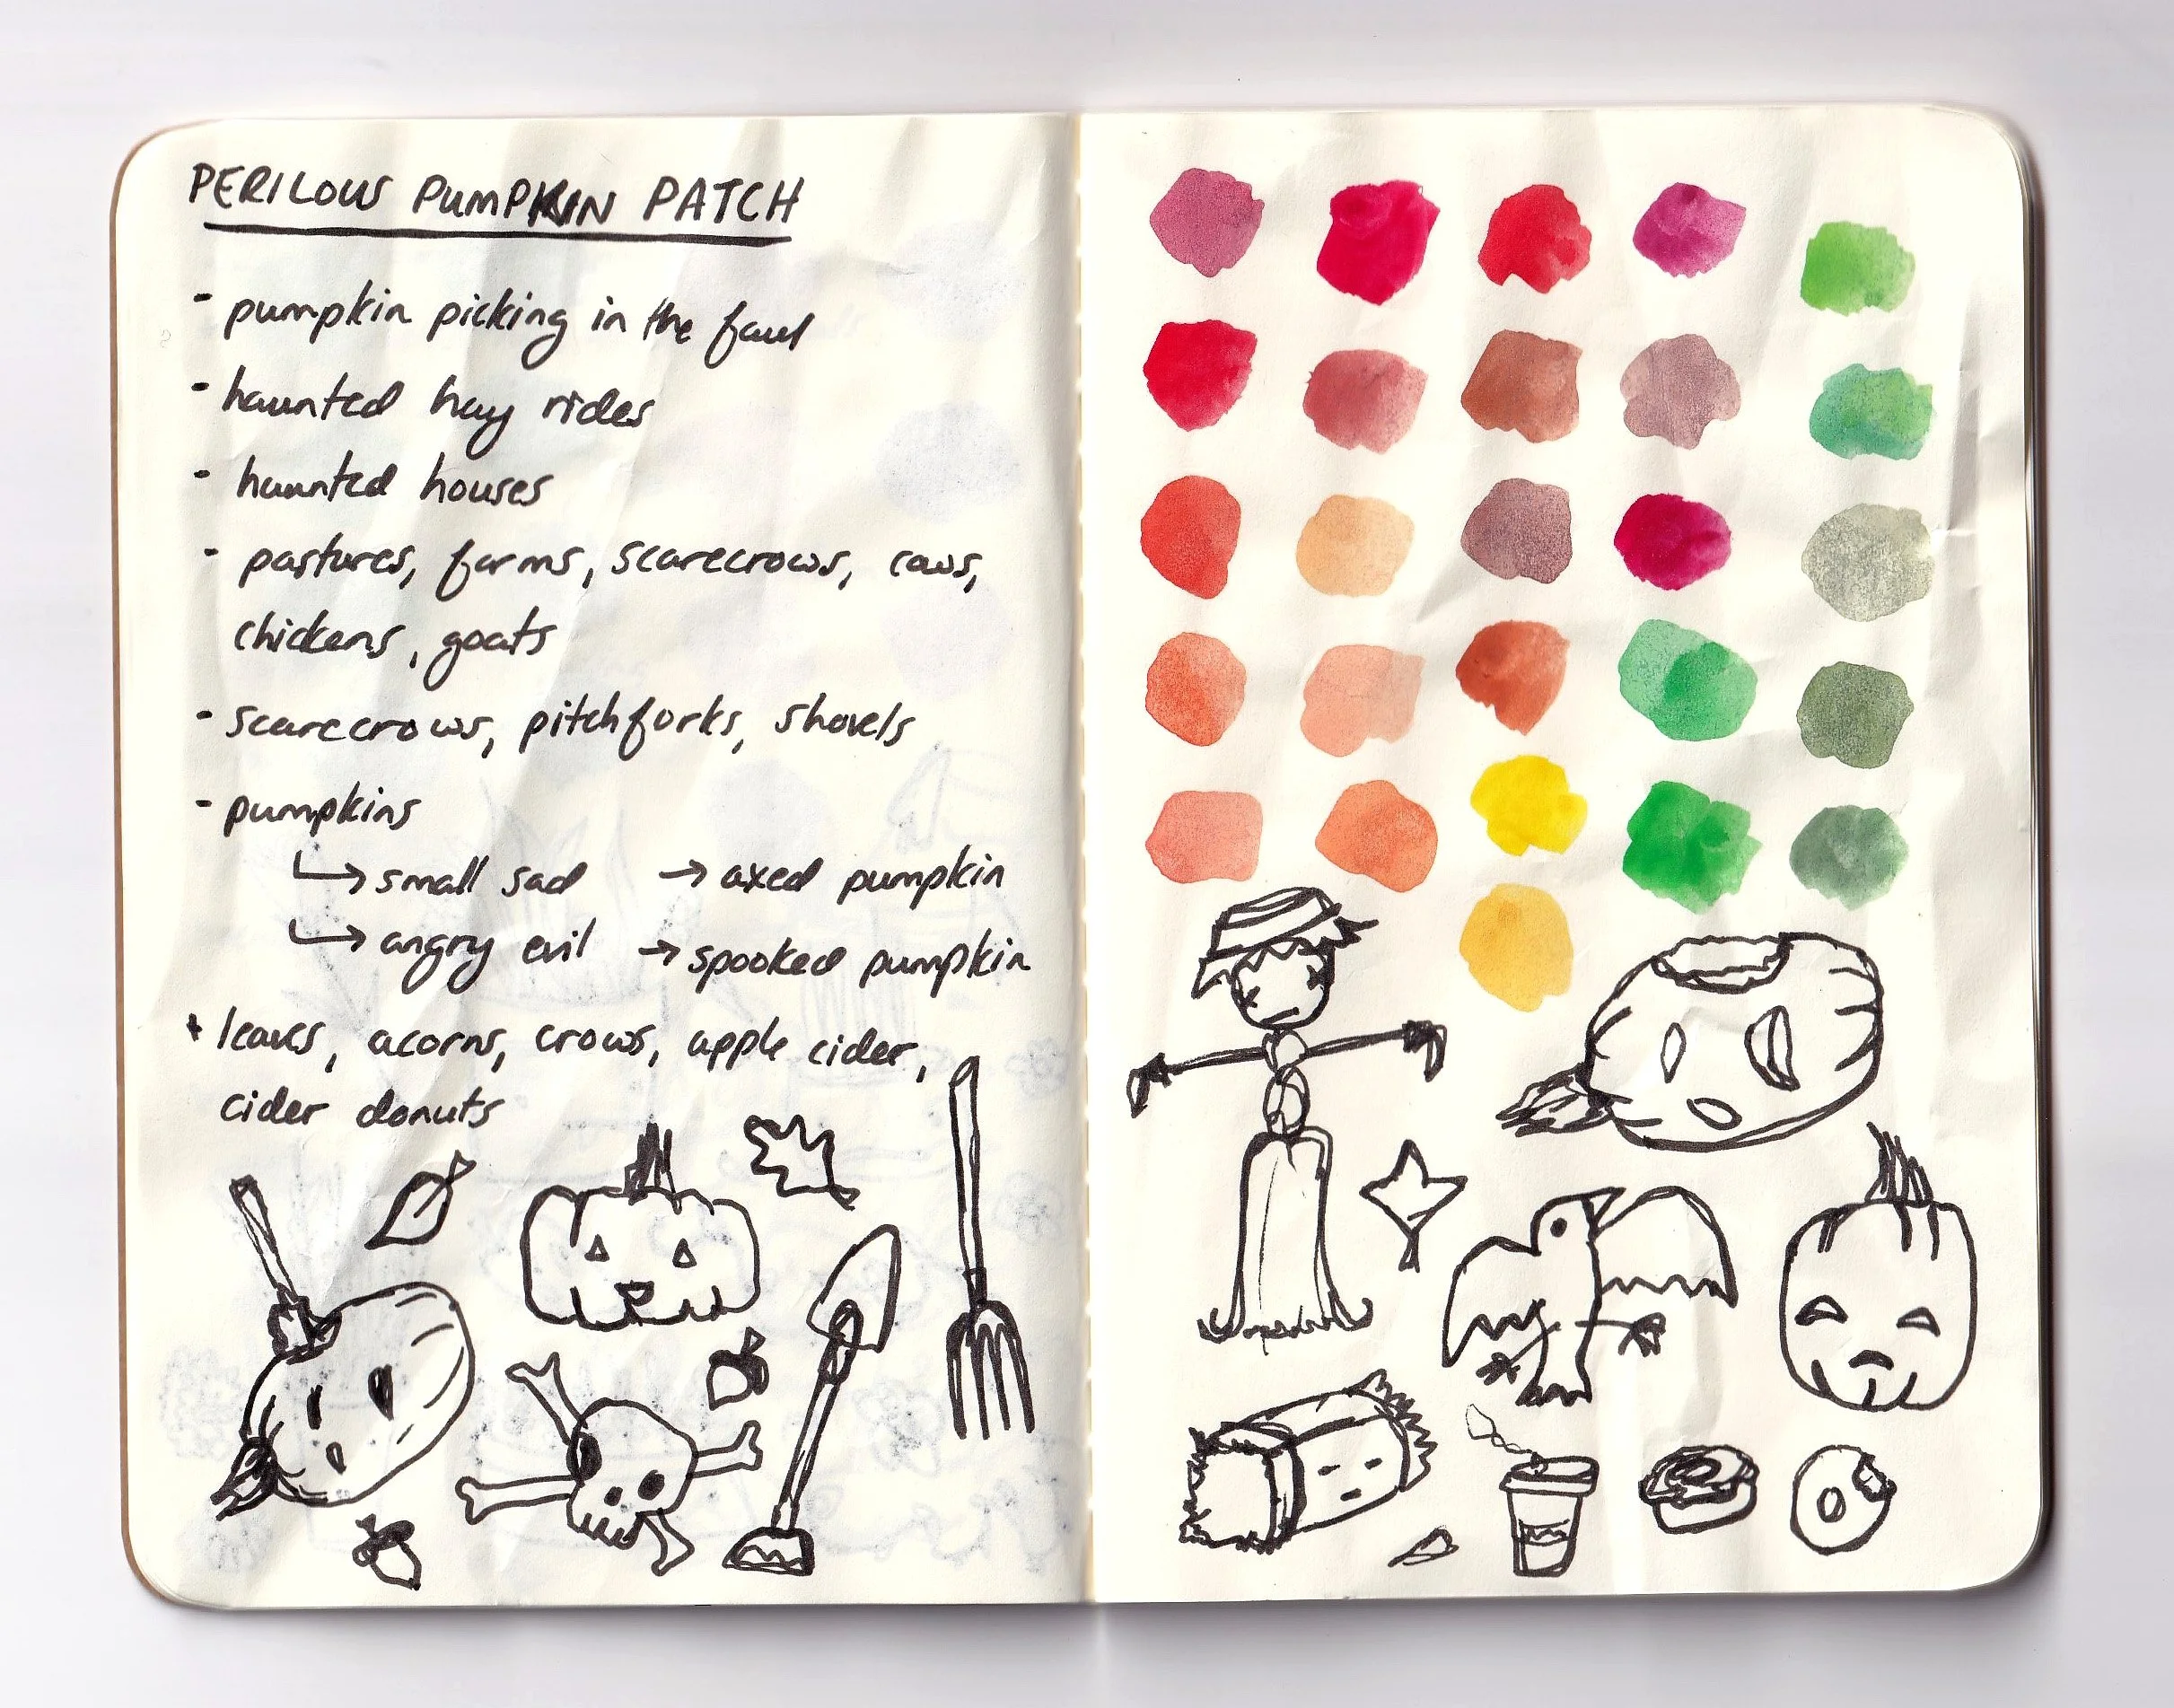 PERILOUS PUMPKIN PATCH
- pumpkin picking in the faul
- haunted hay rides
- haunted houses
- pastures, farms, scarecrows, cows,
chickens, goats
- scarecrows, pitchforks, shovels
- pumpkins
↳ small sad → axed pumpkin
↳ angry evil → spooked pumpkin
* leaves, acorns, crows, apple cider,
cider donuts